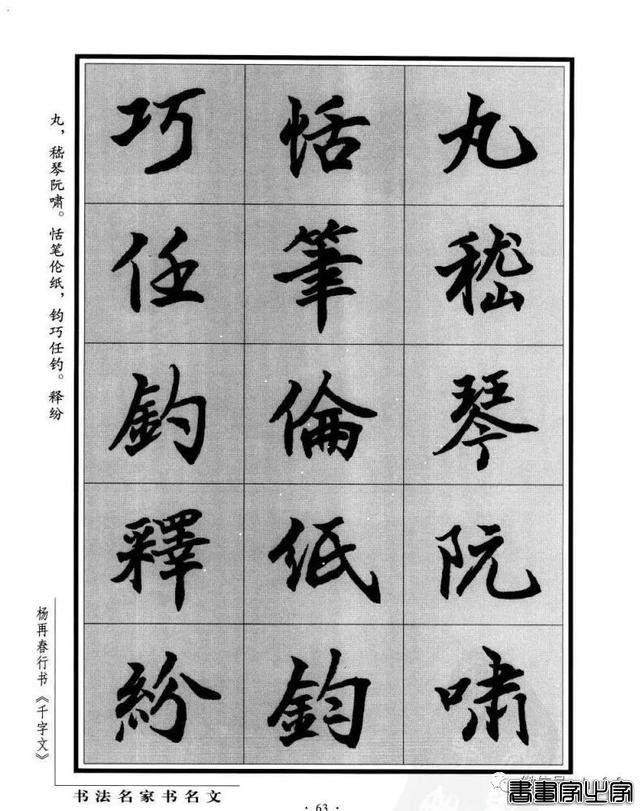 丸嵇琴阮啸
恬筆倫紙鈞
巧任釣釋紛
丸，嵇琴阮啸。恬笔伦纸，钧巧任钓。释纷
杨再春行书《千字文》
书法名家书名文
·63·
書畫家出字